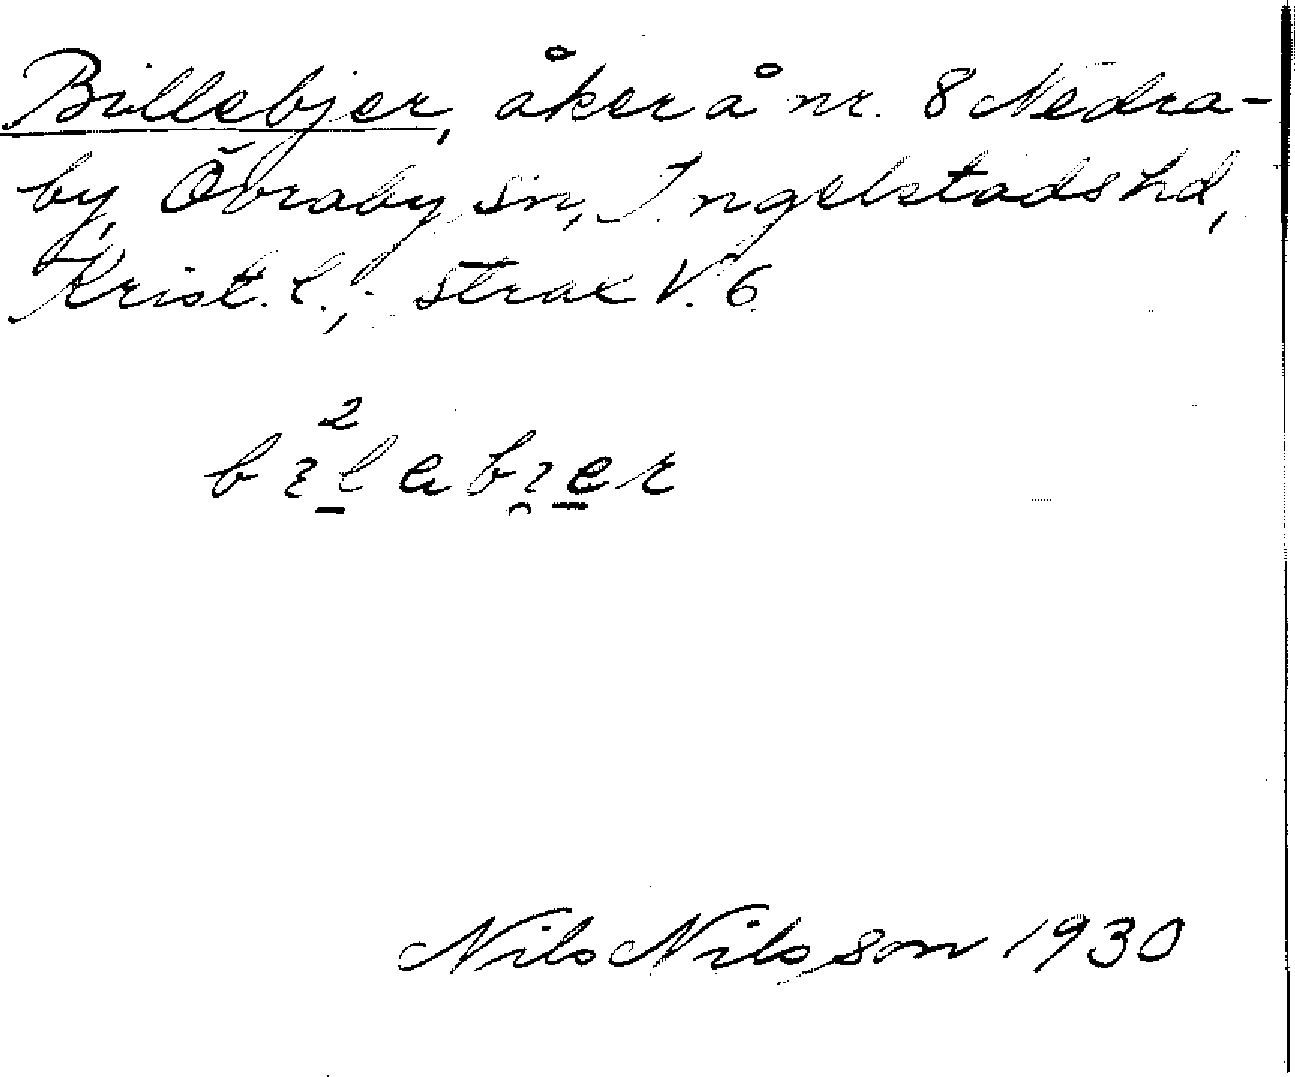 Billebjer, åker å nr. 8 Nedra-
by, Öbraby sn, Ingelstads hd,
Krist. l.; strax V. 6
Nils Nilsson 1930